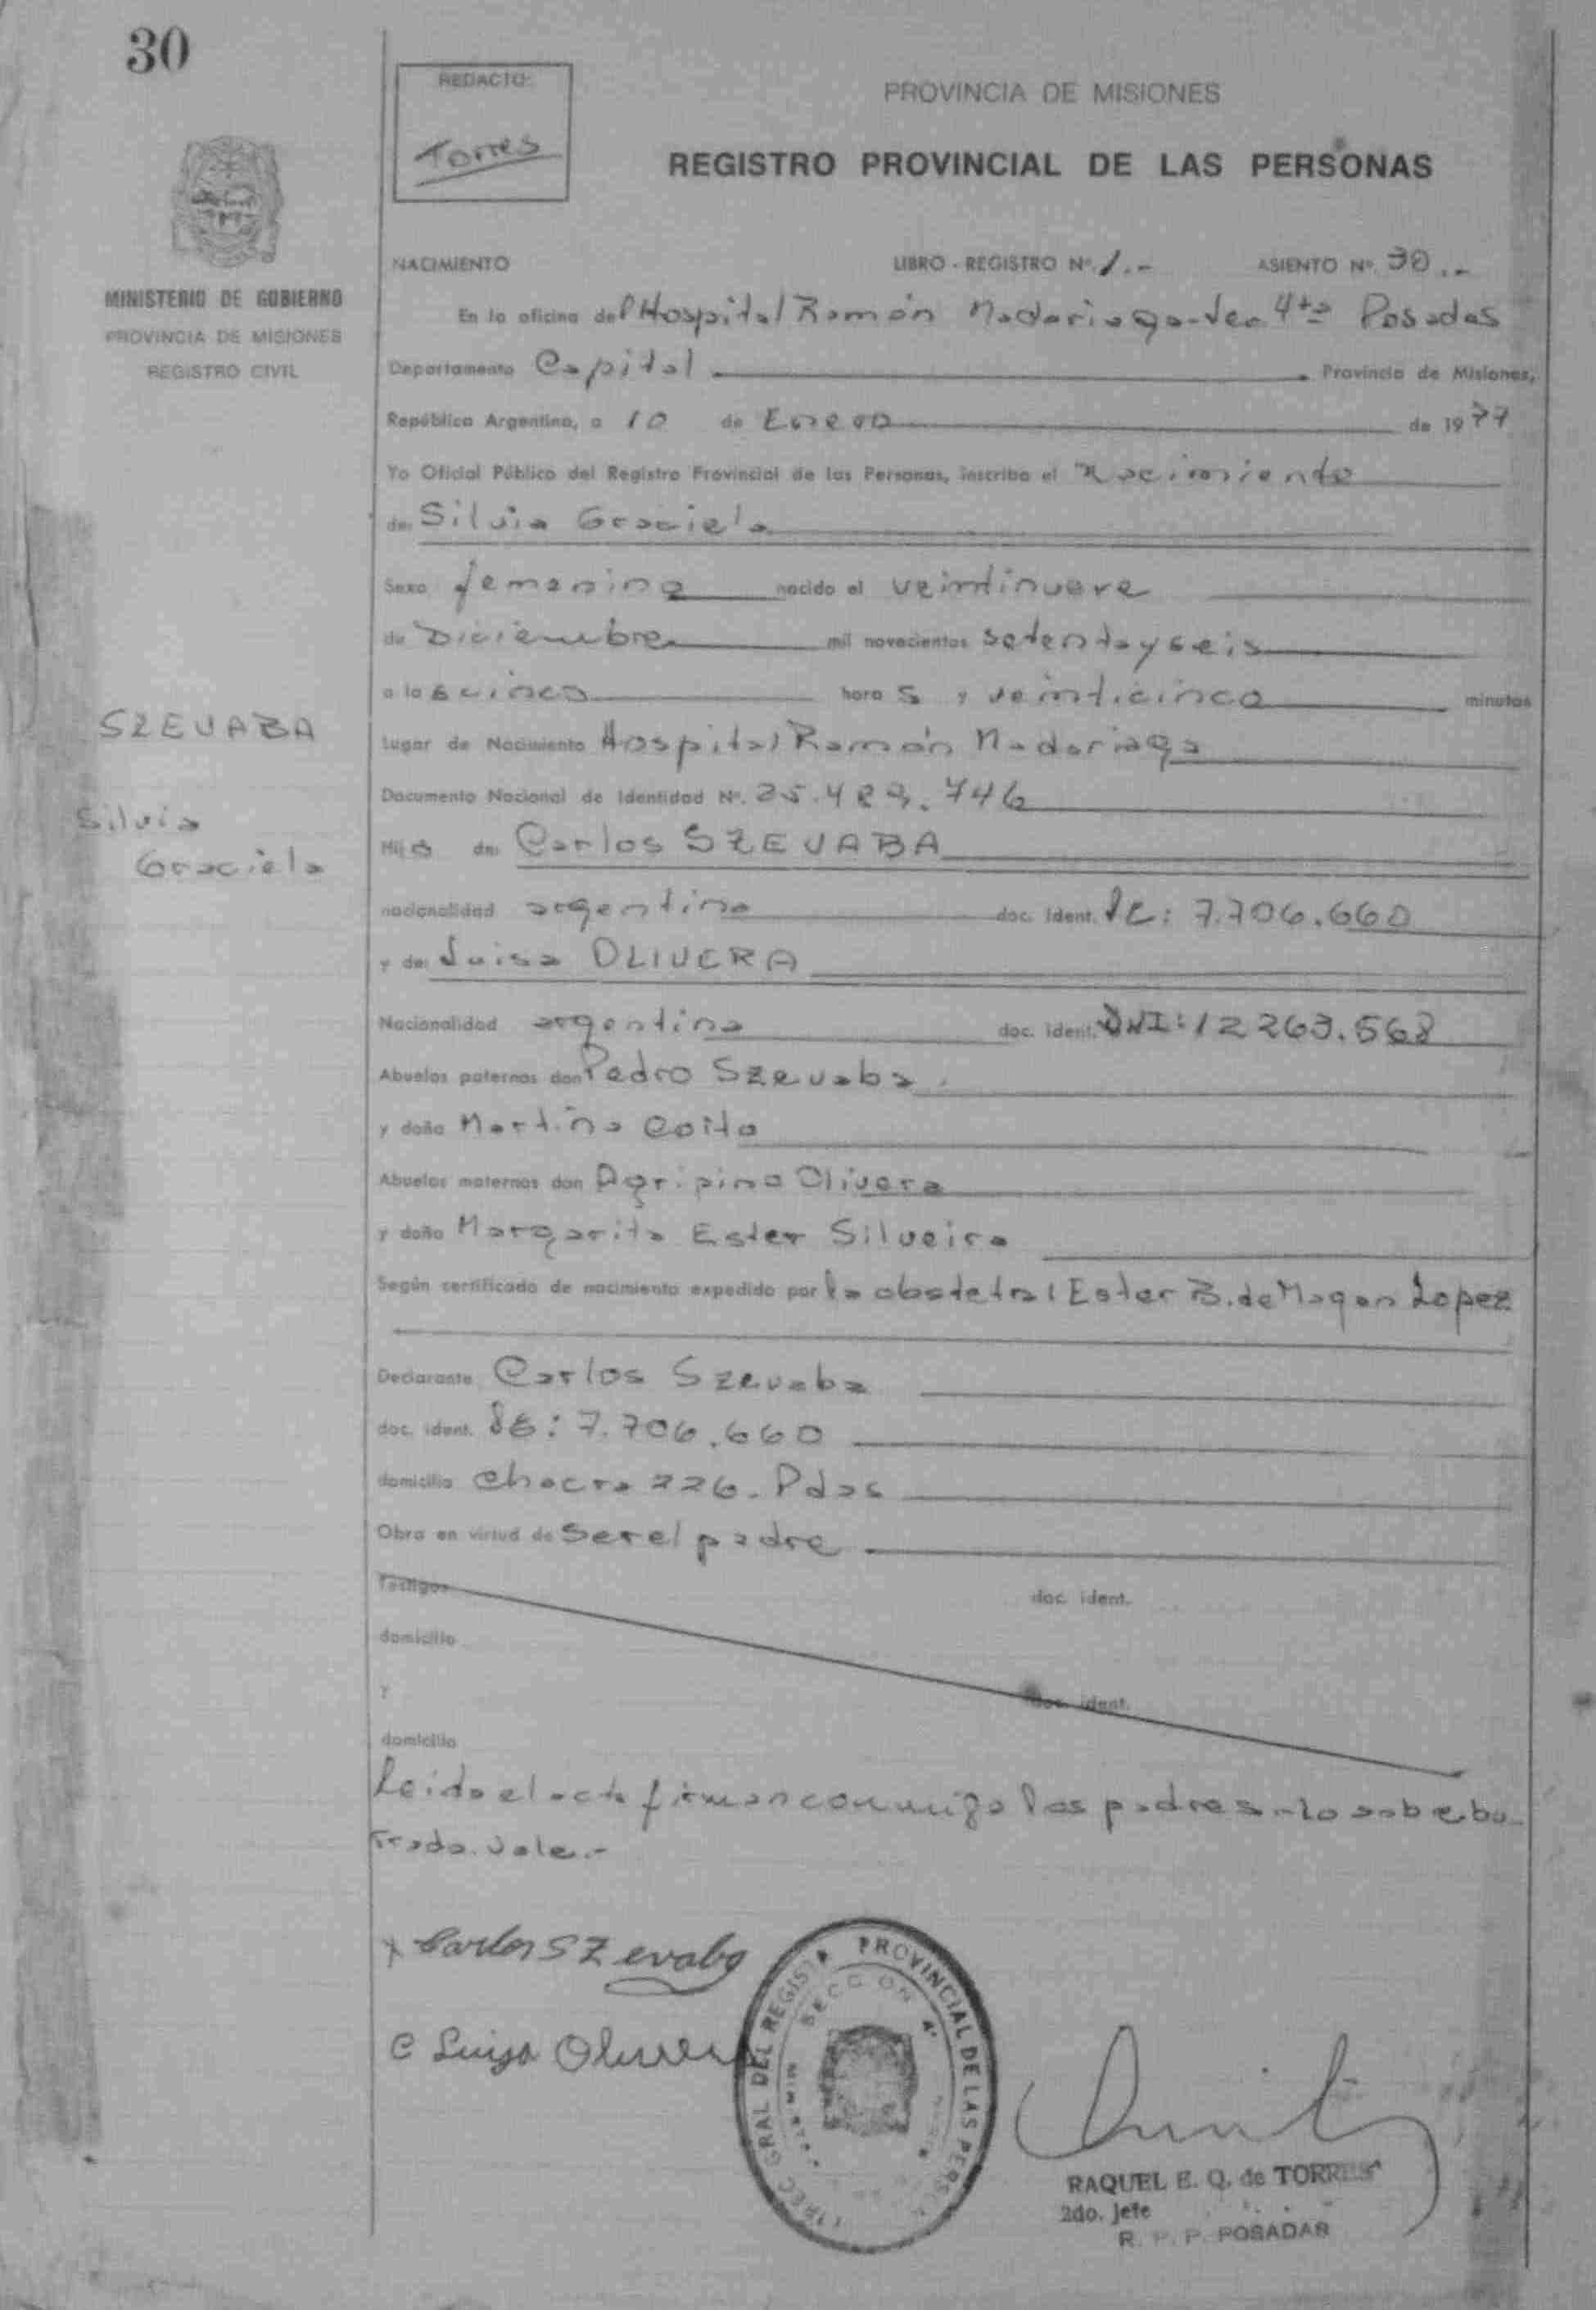 30
REDACTO:
Torres
PROVINCIA DE MISIONES
REGISTRO PROVINCIAL DE LAS PERSONAS
MINISTERIO DE GOBIERNO
PROVINCIA DE MISIONES
REGISTRO CIVIL
NACIMIENTO LIBRO - REGISTRO Nº. 1.- ASIENTO Nº. 30.-
En la oficina del Hospital Ramón Madariaga- 4ta Posadas
Departamento Capital Provincia de Misiones,
República Argentina, a 10 de Enero de 1977
Yo Oficial Público del Registro Provincial de las Personas, inscribo el Nacimiento
de: Silvia Graciela
Sexo femenino nacido el veintinueve
de Diciembre mil novecientos setenta y seis
a las cinco horas y veinticinco minutos
Lugar de Nacimiento Hospital Ramón Madariaga
Documento Nacional de Identidad Nº. 746
SZEVABA
Silvia
Graciela
Hija de: Carlos SZEVABA
nacionalidad argentina doc. ident. 7.706.660
y de: Luisa OLIVERA
Nacionalidad argentina doc. ident. DNI: 12263.568
Abuelos paternos don Pedro Szevaba
y doña Martina Coito
Abuelos maternos don Agripino Olivera
y doña Margarita Ester Silveira
Según certificado de nacimiento expedido por la obstetra Ester B. de Magan Lopez
Declarante Carlos Szevaba
doc. ident. 7.706.660
domicilio Chacra 226. Pdas
Obra en virtud de Ser el padre
Testigos doc. ident.
domicilio
y doc. ident.
domicilio
Leida el acta firman conmigo los padres.-
Vale.-
Carlos SZevaba
Luisa Olivera
DIREC GRAL DEL REGISTRO PROVINCIAL DE LAS PERSONAS
SECCION 4ª
RAQUEL E. Q. de TORRES
2do. Jefe
R. P. P. POSADAS